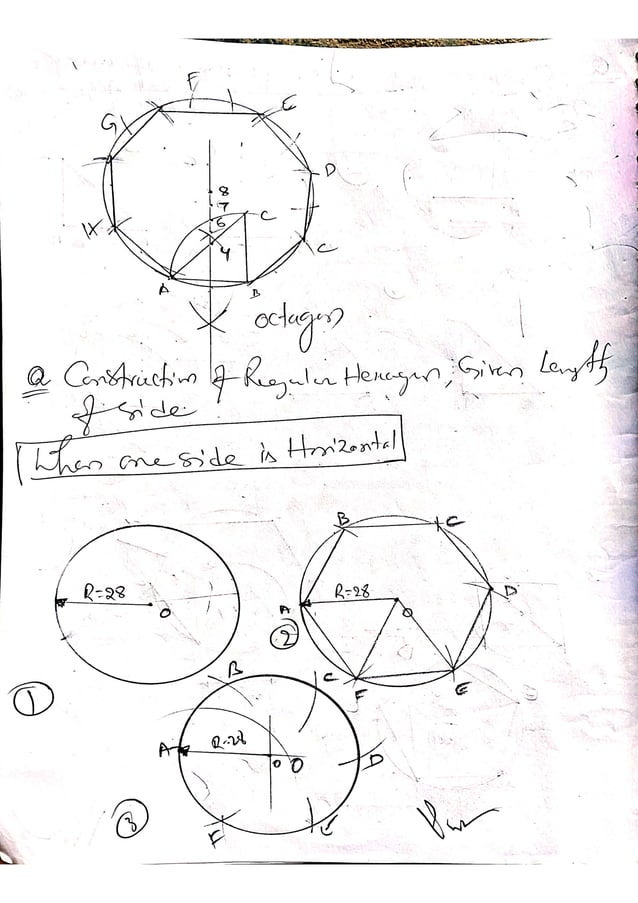 F
E
G
D
8
7
C
6
H
4
C
A
B
octagon
Q Construction of Regular Hexagon; Given Length
of side.
When one side is Horizontal
B
C
R=28
O
A
R=28
O
D
2
F
E
1
B
C
A
R=28
O
O
D
3
F
E